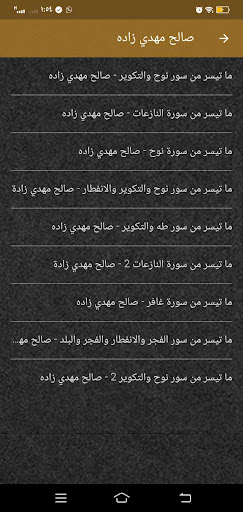 ١:٥٤
صالح مهدي زاده
ما تيسر من سور نوح والتكوير - صالح مهدي زاده
ما تيسر من سورة النازعات - صالح مهدي زاده
ما تيسر من سورة نوح - صالح مهدي زاده
ما تيسر من سور نوح والتكوير والانفطار - صالح مهدي زادة
ما تيسر من سور طه والتكوير - صالح مهدي زاده
ما تيسر من سورة النازعات 2 - صالح مهدي زادة
ما تيسر من سورة غافر - صالح مهدي زاده
ما تيسر من سور الفجر والانفطار والفجر والبلد - صالح مهـ...
ما تيسر من سور نوح والتكوير 2 - صالح مهدي زاده